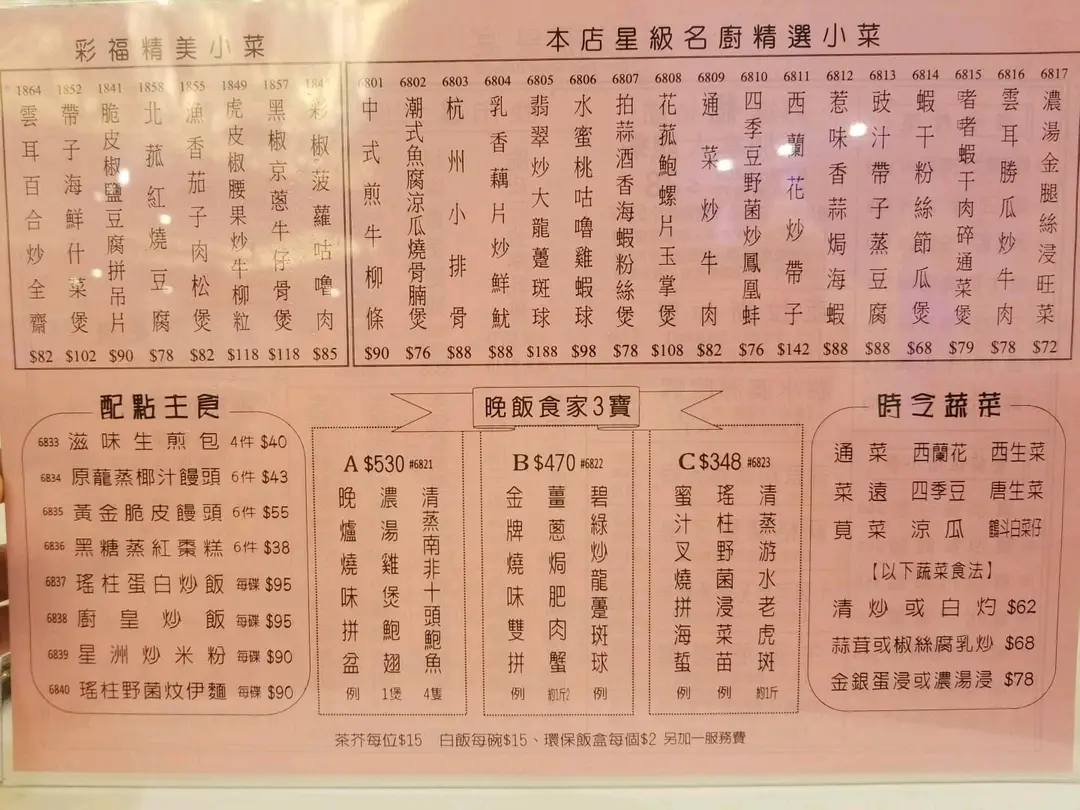 彩福精美小菜
1864 雲耳百合炒全齋 $82
1852 帶子海鮮什菜煲 $102
1841 脆皮椒鹽豆腐拼吊片 $90
1858 北菰紅燒豆腐 $78
1855 漁香茄子肉松煲 $82
1849 虎皮椒腰果炒牛柳粒 $118
1857 黑椒京蔥牛仔骨煲 $118
彩椒菠蘿咕嚕肉 $85
本店星級名廚精選小菜
6801 中式煎牛柳條 $90
6802 潮式魚腐涼瓜燒骨腩煲 $76
6803 杭州小排骨 $88
6804 乳香藕片炒鮮魷 $88
6805 翡翠炒大龍躉斑球 $188
6806 水蜜桃咕嚕雞蝦球 $98
6807 拍蒜酒香海蝦粉絲煲 $78
6808 花菰鮑螺片玉掌煲 $108
6809 通菜炒牛肉 $82
6810 四季豆野菌炒鳳凰蚌 $76
6811 西蘭花炒帶子 $142
6812 惹味香蒜焗海蝦 $88
6813 豉汁帶子蒸豆腐 $88
6814 蝦干粉絲節瓜煲 $68
6815 啫啫蝦干肉碎通菜煲 $79
6816 雲耳勝瓜炒牛肉 $78
6817 濃湯金腿絲浸旺菜 $72
配點主食
6833 滋味生煎包 4件 $40
6834 原龍蒸椰汁饅頭 6件 $43
6835 黃金脆皮饅頭 6件 $55
6836 黑糖蒸紅棗糕 6件 $38
6837 瑤柱蛋白炒飯 每碟 $95
6838 廚皇炒飯 每碟 $95
6839 星洲炒米粉 每碟 $90
6840 瑤柱野菌炆伊麵 每碟 $90
晚飯食家3寶
A $530 #6821
晚爐燒味拼盆 例
濃湯雞煲鮑翅 1煲
清蒸南非十頭鮑魚 4隻
B $470 #6822
金牌燒味雙拼 例
薑蔥焗肥肉蟹 約1斤2
碧綠炒龍躉斑球 例
C $348 #6823
蜜汁叉燒拼海蜇 例
瑤柱野菌浸菜苗 例
清蒸游水老虎斑 約1斤
時令蔬菜
通菜 西蘭花 西生菜
菜遠 四季豆 唐生菜
莧菜 涼瓜 鶴斗白菜仔
【以下蔬菜食法】
清炒或白灼 $62
蒜茸或椒絲腐乳炒 $68
金銀蛋浸或濃湯浸 $78
茶芥每位$15 白飯每碗$15、環保飯盒每個$2 另加一服務費